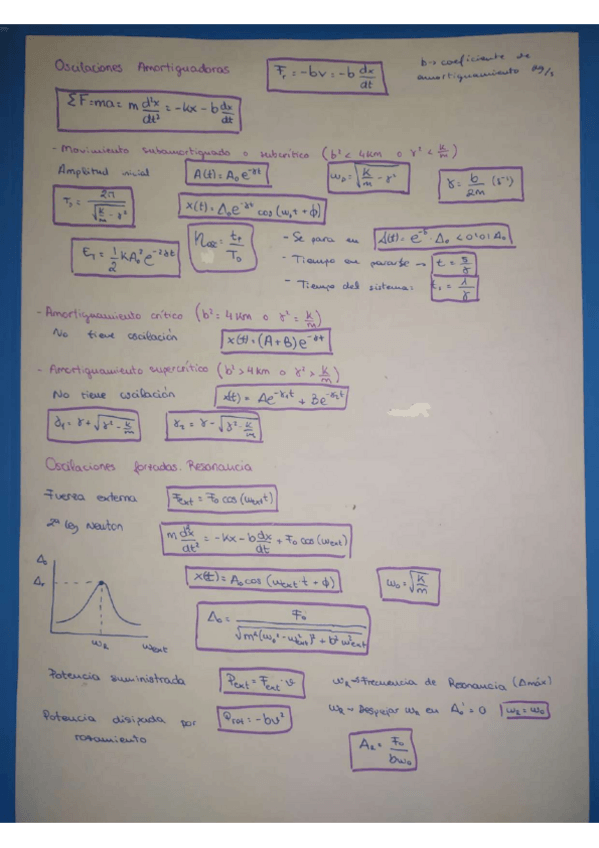 Oscilaciones Amortiguadoras
Fr = -bv = -b dx/dt
b → coeficiente de
amortiguamiento kg/s
ΣF = ma = m d²x/dt² = -kx - b dx/dt
- Movimiento subamortiguado o subcrítico (b² < 4km o γ² < k/m)
Amplitud inicial
A(t) = A₀e^-γt
ω_D = √(k/m - γ²)
γ = b/2m (s⁻¹)
T_D = 2π/√(k/m - γ²)
x(t) = A₀e^-γt cos(ω_D t + φ)
E_T = 1/2 KA₀² e^-2γt
n_osc = t_P/T_D
- Se para en
A(t) = e^-5 · A₀ < 0'01 A₀
- Tiempo en pararse → t = 5/γ
- Tiempo del sistema:
- Amortiguamiento crítico (b² = 4km o γ² = k/m)
No tiene oscilación
x(t) = (A+B)e^-γt
- Amortiguamiento supercrítico (b² > 4km o γ² > k/m)
No tiene oscilación
x(t) = Ae^-γ₁t + Be^-γ₂t
γ₁ = γ + √(γ² - k/m)
γ₂ = γ - √(γ² - k/m)
Oscilaciones forzadas. Resonancia
Fuerza externa
Fext = F₀ cos(ωext t)
2ª ley Newton
m d²x/dt² = -kx - b dx/dt + F₀ cos(ωext)
x(t) = A₀ cos(ωext t + φ)
ω₀ = √(k/m)
A₀
Ar
ω_R
ωext
A₀ = F₀/√(m²(ω₀² - ωext²)² + b²ωext²)
Potencia suministrada
Pext = Fext · v
ω_R → Frecuencia de Resonancia (Amáx)
Potencia disipada por
rozamiento
Proz = -bv²
ω_R → Despejar ω_R en A₀' = 0
ω_R = ω₀
A_R = F₀/bω₀